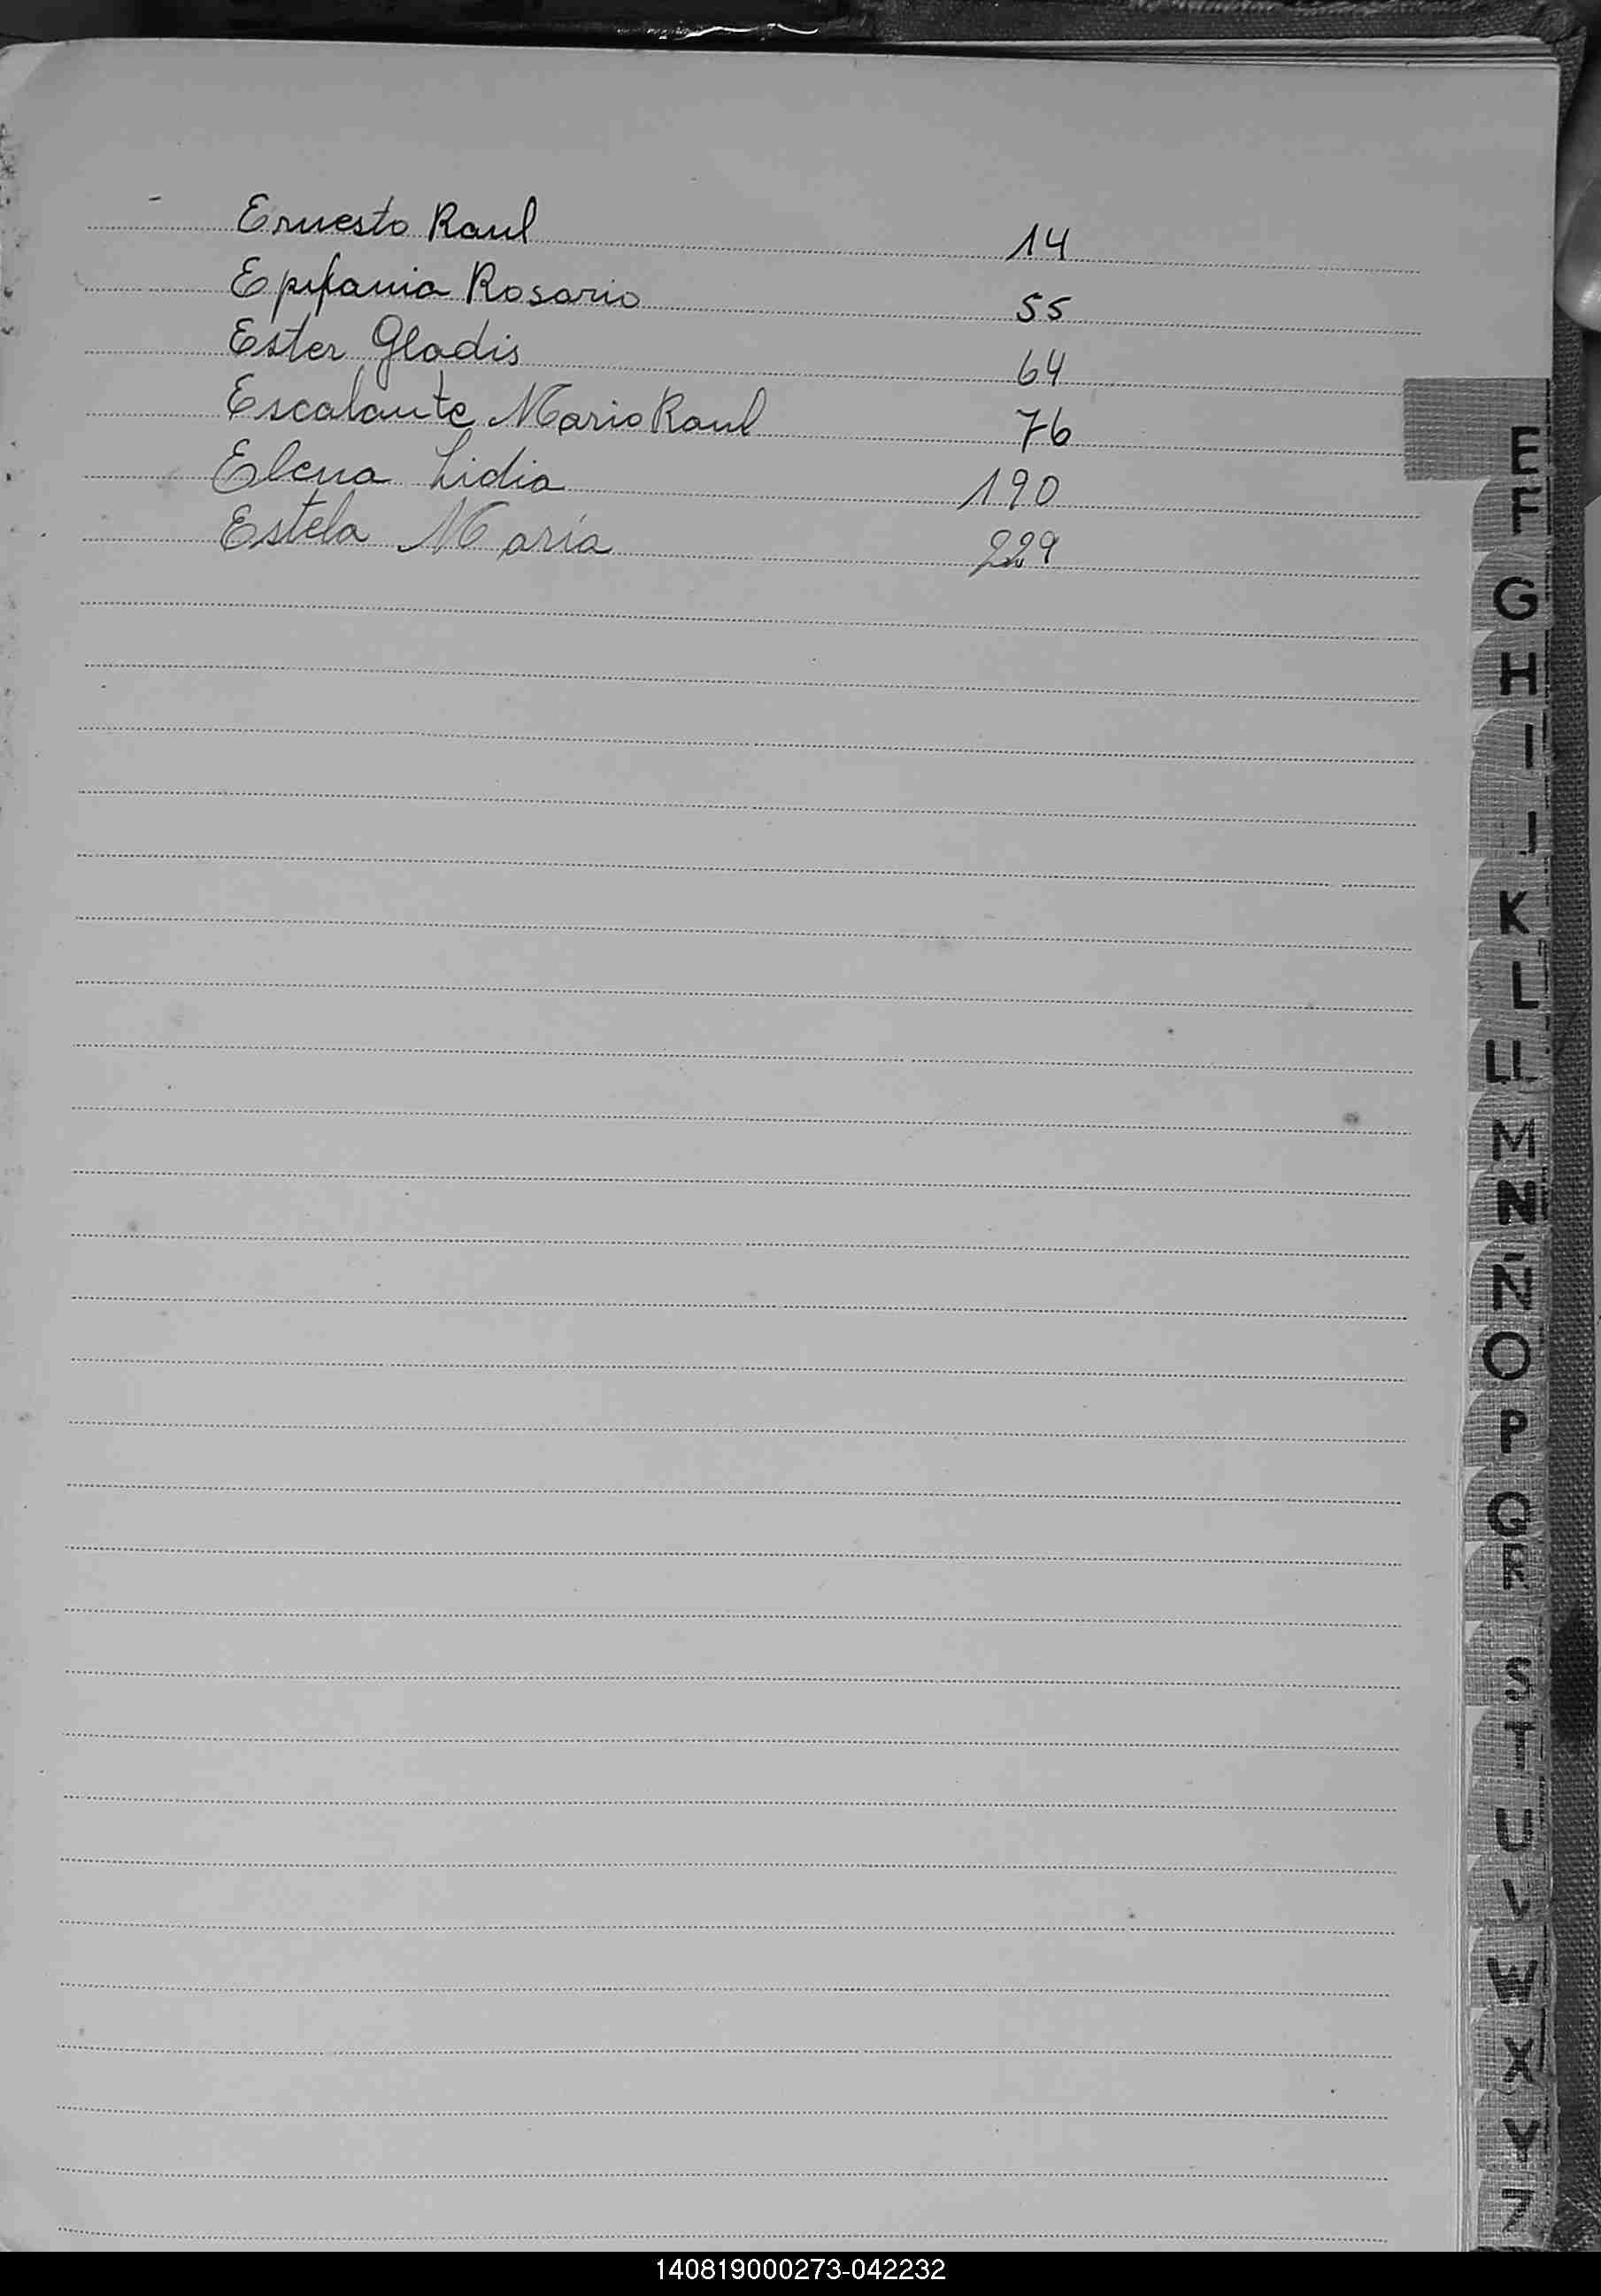 Ernesto Raul 14
Epifania Rosario 55
Ester Gladis 64
Escalante Mario Raul 76
Elena Lidia 190
Estela María 229
E
F
G
H
I
J
K
L
LL
M
N
Ñ
O
P
Q
R
S
T
U
V
W
X
Y
Z
140819000273-042232